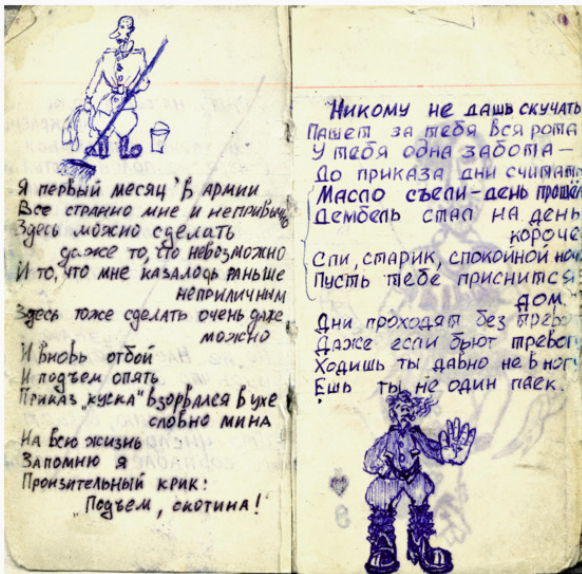 Я первый месяц в армии
Все странно мне и непривыч
Здесь можно сделать
даже то, что невозможно
И то, что мне казалось раньше
неприличным
Здесь тоже сделать очень даже
можно
И вновь отбой
И подъем опять
Приказ „куска" взорвался в ухе
словно мина
На всю жизнь
Запомню я
Пронзительный крик:
„Подъем, скотина!
Никому не дашь скучать
Пашет за тебя вся рота
У тебя одна забота —
До приказа дни считать
Масло съели – день прошел
Дембель стал на день
короче
Спи, старик, спокойной ноч
Пусть тебе приснится
дом
Дни проходят без трев
Даже если бьют тревог
Ходишь ты давно не в ног
Ешь ты не один паек.